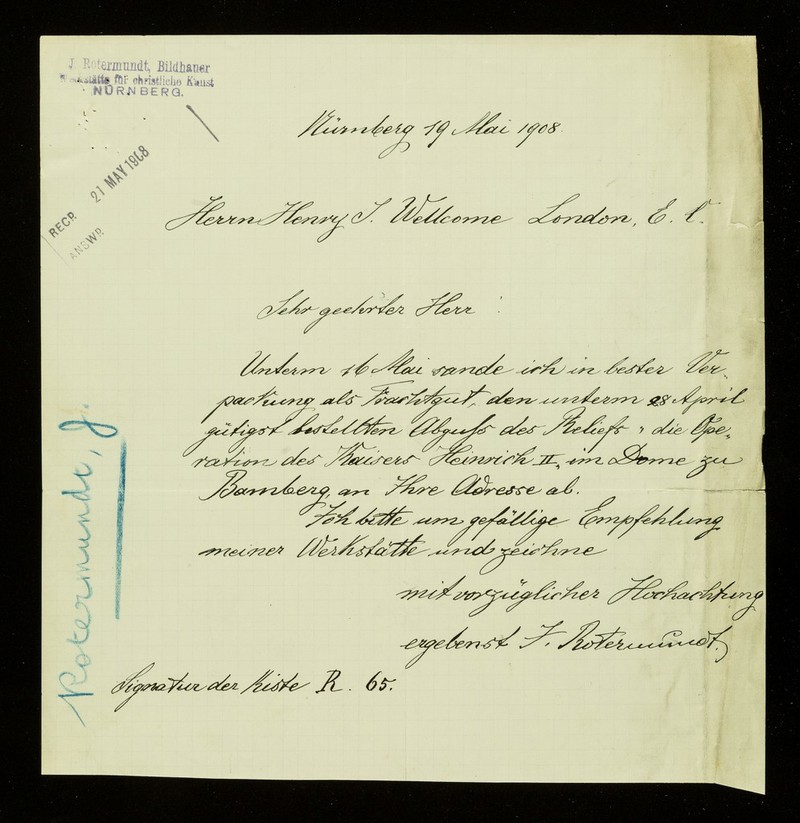 J Rotermundt, Bildhauer
Werkstätte für christliche Kunst
NÜRNBERG.
RECD 21 MAY 1908
ANSWD
Nürnberg 19 Mai 1908.
Herrn Henry S. Wellcome London, E. C.
Sehr geehrter Herr!
Unterm 16 Mai sande ich in bester Ver-
packung als Frachtgut, den unterm 28 April
gütigst bestellten Abguß des Reliefs „die Ope-
ration des Kaisers Heinrich II„ im Dome zu
Bamberg, an Ihre Adresse ab.
Ich bitte um gefällige Empfehlung
meiner Werkstätte und zeichne
mit vorzüglicher Hochachtung
ergebenst J. Rotermundt.
Signatur der Kiste R. 65.
Rotermundt, J.